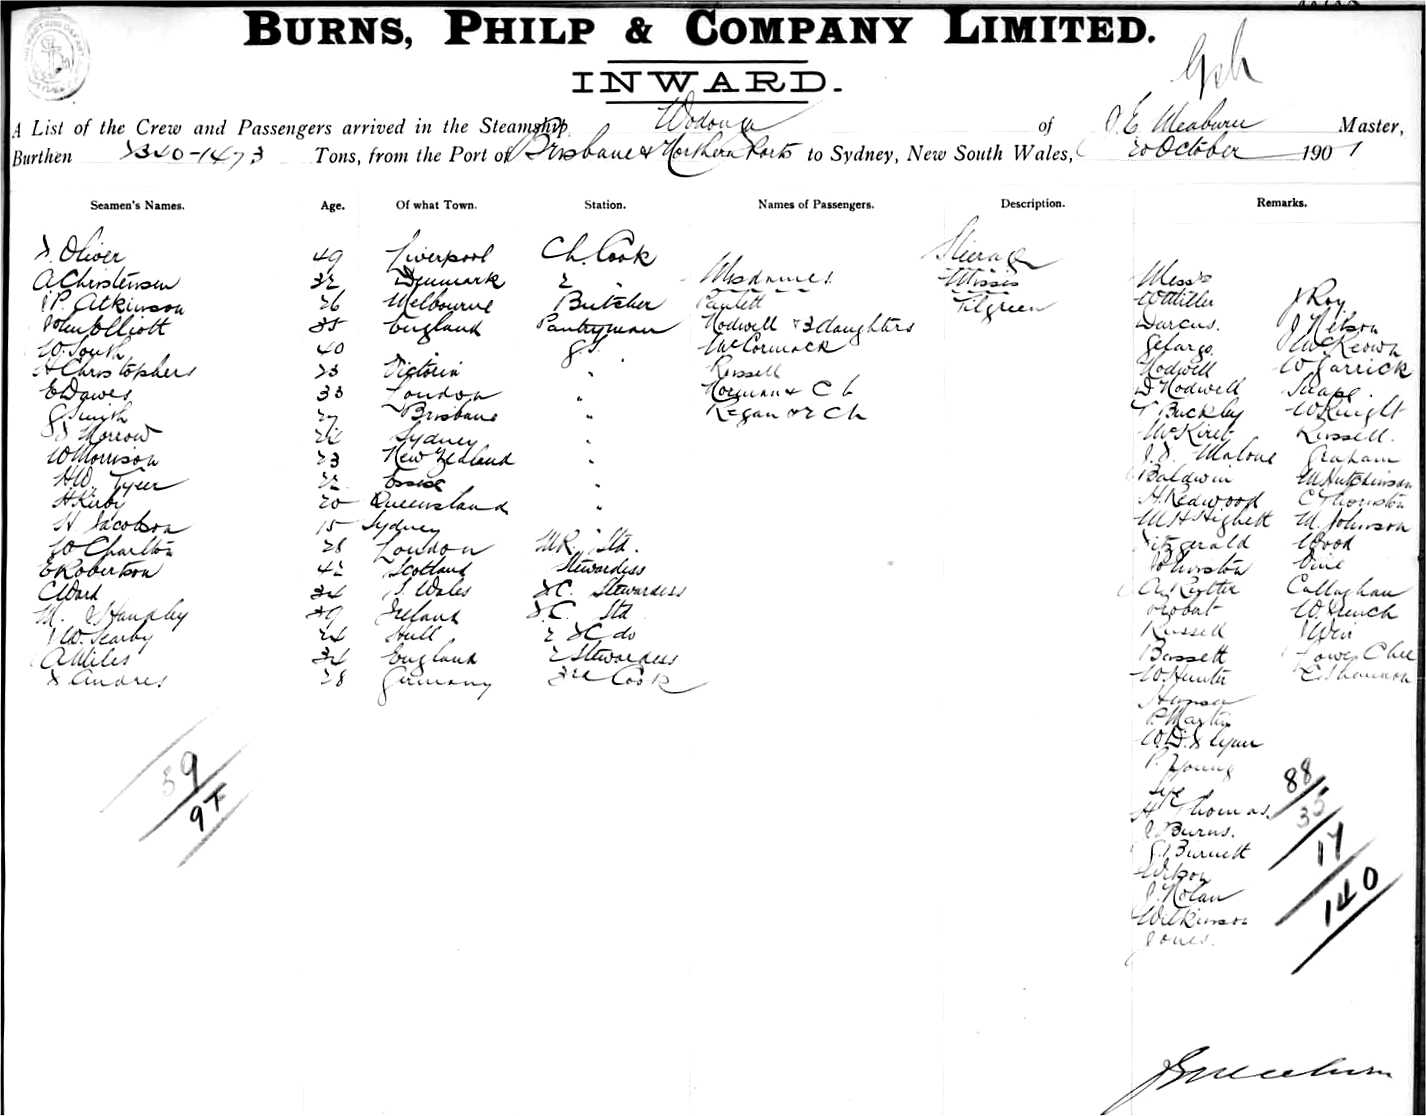 BURNS, PHILP & COMPANY LIMITED.
INWARD.
A List of the Crew and Passengers arrived in the Steamship Wodonga of J E Meaburn Master,
Burthen 2340-1473 Tons, from the Port of Brisbane & Northern Ports to Sydney, New South Wales, 20 October 1901
Seamen's Names. Age. Of what Town. Station. Names of Passengers. Description. Remarks.
Oliver 49 Liverpool Ch. Cook
A Christensen 32 Denmark 2 "
P. Atkinson 26 Melbourne Butcher
John Elliott 35 England Pantryman
W. South 40 " G.S. "
A Christophers 23 Victoria "
E Dawes 33 London "
G Smith 27 Brisbane "
Morrow Sydney "
W Morrison 23 New Zealand "
H.W. Tyler 22 Essex "
H Kirby 20 Queensland "
H Jacobson 15 Sydney "
W Charlton 28 London Std.
E Robertson 42 Scotland Stewardess
C Ward 34 S. Wales S.C. Stewardess
M. Handley 39 Ireland S.C. Std
W. Searby 24 Hull 2 S.C. do
A Miles 34 England 2 Stewardess
Andres 28 Germany 3rd Cook
39
97
Mesdames
Paulett
Hodwell & 3 daughters
McCormack
Russell
Norman & Ch
Regan & 2 Ch
Steerage
Misses
Tilgreen
Messrs
Darcus.
Gefargo
Hodwell
D Hodwell
T Buckley
Malone
Baldwin
H. Redwood
M H Highett
Fitzgerald
Johnston
Probat
Russell
Bassett
W Hunter
P. Martin
P. Young
Lye
H Thomas.
J Burns.
G. Burnett
Wilson
J. Nolan
Wilkinson
Jones.
J Roy
J Nelson
McKeown
W Garrick
Snape.
W Knight
Russell.
Graham
M Hutchinson
C Thornston
M. Johnson
Wood
Vine
Callaghan
W. French
Weir
Lowe Chee
E Shannon
88
35
17
140
J E Meaburn